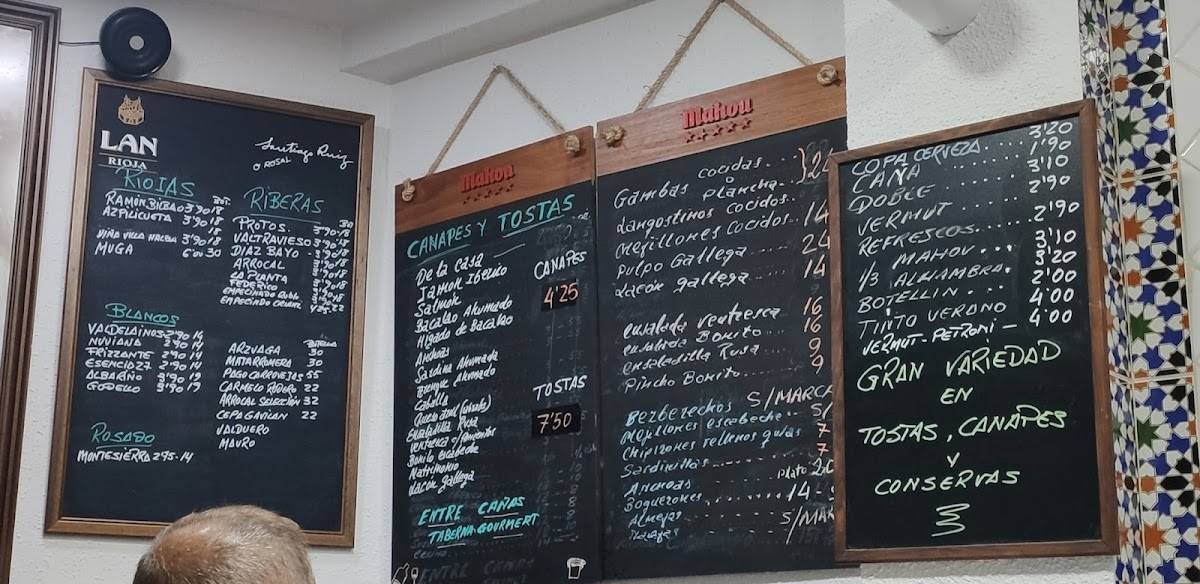 LAN
RIOJA
Santiago Ruiz
O ROSAL
RIOJAS
BOT.
RAMÓN BILBAO 3'90 18
AZPILICUETA 3'90 18
VIÑA VILLA HALBA 3'90 18
MUGA 6'00 30
RIBERAS
PROTOS. 3'90 18
VALTRAVIESO 3'90 18
DIAZ BAYO 3'90 18
ARROCAL
LA PLANTA
FEDERICO
EMPECINADO Roble
EMPECINADO CRIANZ.
BLANCOS
VALDELAINOS 2'90 14
NUVIANA 2'90 14
FRIZZANTE 2'90 14
ESENCIA 27 2'90 14
ALBARIÑO 3'90 19
GODELLO 3'90 19
BOTELLA
ARZUAGA 30
MATARROMERA 30
PAGO CARROVEJAS 55
CARMELO RODERO 22
ARROCAL SELECCIÓN 32
CEPA GAVILAN 22
VALDUERO
MAURO
ROSADO
MONTESIERRO 2'75-14
Mahou
CANAPES Y TOSTAS
De la Casa
Jamon Iberico
Salmon
Bacalao Ahumado
Higado de Bacalao
Anchoas
Sardina Ahumada
Arenque Ahumado
Caballa
Queso azul
Ensaladilla Rusa
Ventresca c/pimientos
Bonito escabeche
Matrimonio
Lacon gallega
CANAPES
4'25
TOSTAS
7'50
ENTRE CAÑAS
TABERNA-GOURMET
Mahou
Gambas cocidas
o plancha } 24
Langostinos cocidos
Mejillones cocidos 14
Pulpo Gallega 24
Lacón gallega 14
ensalada Ventresca 16
ensalada Bonito 16
ensaladilla Rusa 9
Pincho Bonito 9
Berberechos S/MARCA
Mejillones escabeche S/
Chipirones rellenos gulas 7
Sardinillas 7
Anchoas plato
Boquerones 14
Almejas S/MAR
Navajas
COPA CERVEZA 3'20
CAÑA 1'90
DOBLE 3'10
VERMUT 2'90
REFRESCOS 2'90
1/3 MAHOU 3'10
1/3 ALHAMBRA 3'20
BOTELLIN 2'00
TINTO VERANO 4'00
VERMUT-PETRONI — 4'00
GRAN VARIEDAD
EN
TOSTAS, CANAPES
Y
CONSERVAS